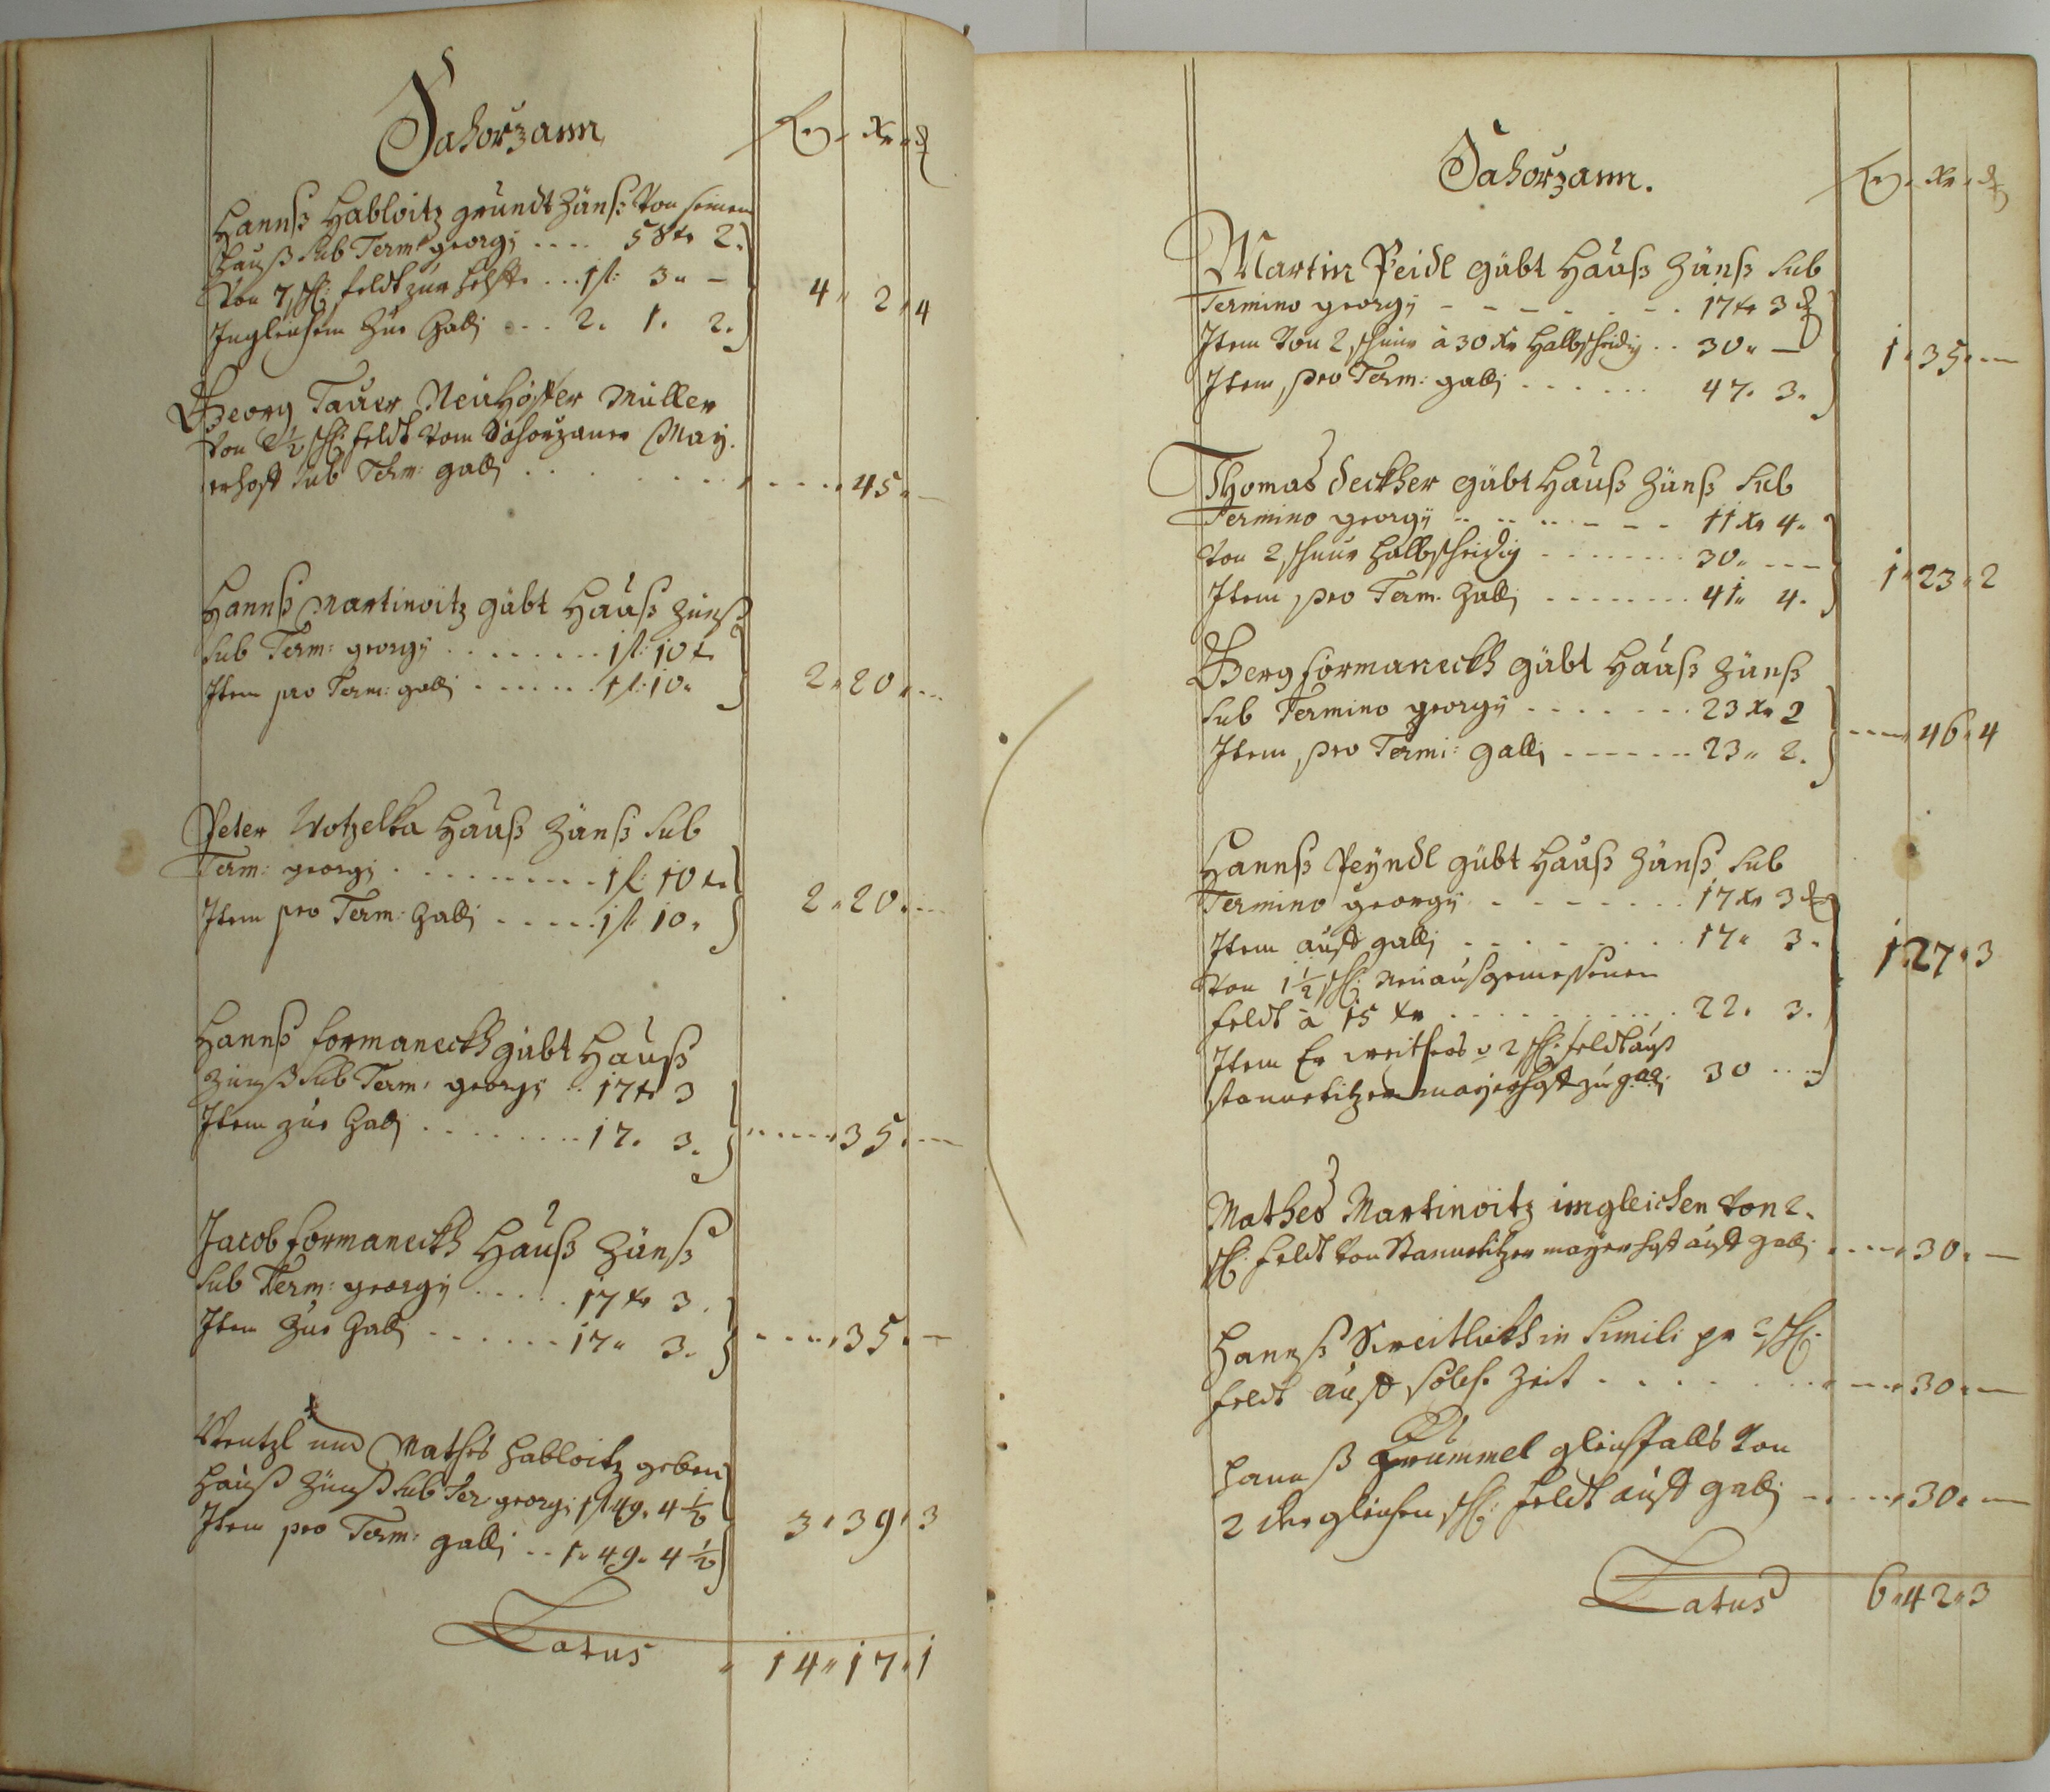 Sahorzann
fl. Xr. d
Hannß Habloitz grundt Zünß Von seinem
Hauß Sub Term: georgy .... 58 xr 2.
Von 7 sch: feldt zur helfte ... 1 fl: 3. —
Ingleichem Zue Galli ... 2. 1. 2.
4. 2. 4
Georg Tauer Neuhöffer Müller
Von 2½ sch: feldt Vom Sahorzaner May.
erhoff Sub Term: galli . . . . . . . . . 45. —
Hannß Martinoitz gübt Hauß Zünß
Sub Term: georgy . . . . . . . . 1 fl: 10 x.
Item pro Term: galli . . . . . . 1 fl: 10.
2. 20. —
Peter Wotzelka Hauß Zünß Sub
Term: georgy . . . . . . . . . 1 fl: 10 xr
Item pro Term: Galli . . . . . 1 fl: 10.
2. 20. —
Hannß formaneckh gübt Hauß
Zünß Sub Term: georgy .. 17 xr 3
Item zue Galli . . . . . . . . 17. 3.
35. —
Jacob formaneckh Hauß Zünß
Sub Term: georgy . . . . . 17 xr 3.
Item Zue Galli . . . . . . 17. 3.
35. —
Wentzl und Mathes Habloitz geben
Hauß Zünß Sub Ter: georgi 1 fl 49. 4 ½
Item pro Term: galli .. 1. 49. 4 ½
3. 39. 3
Latus 14. 17. 1
Sahorzann.
fl. Xr. d
Martin Peidl gübt Hauß Zünß Sub
Termino georgy - - - - - - . . 17 xr 3 d
Item Von 2 schnur à 30 Xr Halbscheidig .. 30. —
Item pro Term: galli . . . . . . 47. 3.
1. 35. —
Thomas deckher gübt Hauß Zünß Sub
Termino georgy . . . . - - - 11 Xr 4.
Von 2 schnur halbscheidig . . . . . . . 30. —
Item pro Term. Galli . . . . . . . . 41. 4.
1. 23. 2
Gerg formaneckh gübt Hauß Zünß
Sub Termino georgy . . . . . . . 23 Xr 2
Item pro Termi: Galli . . . . . . . 23. 2.
46. 4
Hannß Peyndl gübt Hauß Zünß Sub
Termino georgy . . . . . . . . 17 Xr 3 d
Item auff galli . . . . . . . . 17. 3.
Von 1½ sch: Neu ausgemessenen
feldt à 15 Xr . . . . . . . . . . 22. 3.
Item Er weithers v 2 sch: feldt auß
mayerhoff zu galli 30 . . .
1. 27. 3
Mathes Martinoitz imgleichen Von 2.
sch: feldt Von mayerhoff auff galli . . . . 30. —
Hannß in Simili pr 2 sch:
feldt auff solche Zeit . . . . . . . . . 30. —
Hannß Grummel gleichfalls Von
2 dergleichen sch: feldt auff galli . . . . . 30. —
Latus 6. 42. 3